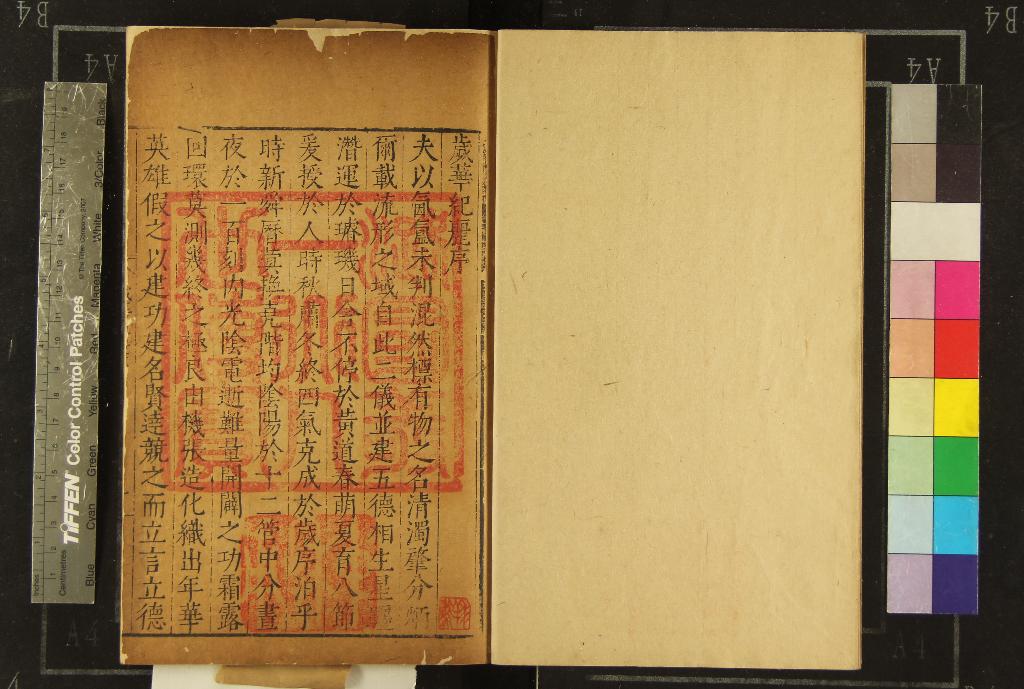 歲華紀麗序
夫以氤氳未判混然標有物之名清濁肇分
爾載流形之域自此二儀並建五德相生星
潛運於璿璣日令不停於黃道春萌夏育八節
爰授於人時秋肅冬終四氣克成於歲序洎乎
時新舜曆莫換堯階均陰陽於十二管中分晝
夜於一百刻內光陰電逝難量開闢之功霜露
回環莫測幾終之極良由機張造化織出年華
英雄假之以建功建名賢達競之而立言立德
TIFFEN Color Control Patches
© The Tiffen Company, 2007
Inches
Centimetres
Blue Cyan Green Yellow Red Magenta White 3/Color Black
B4
B4
A4
A4
A4
A4